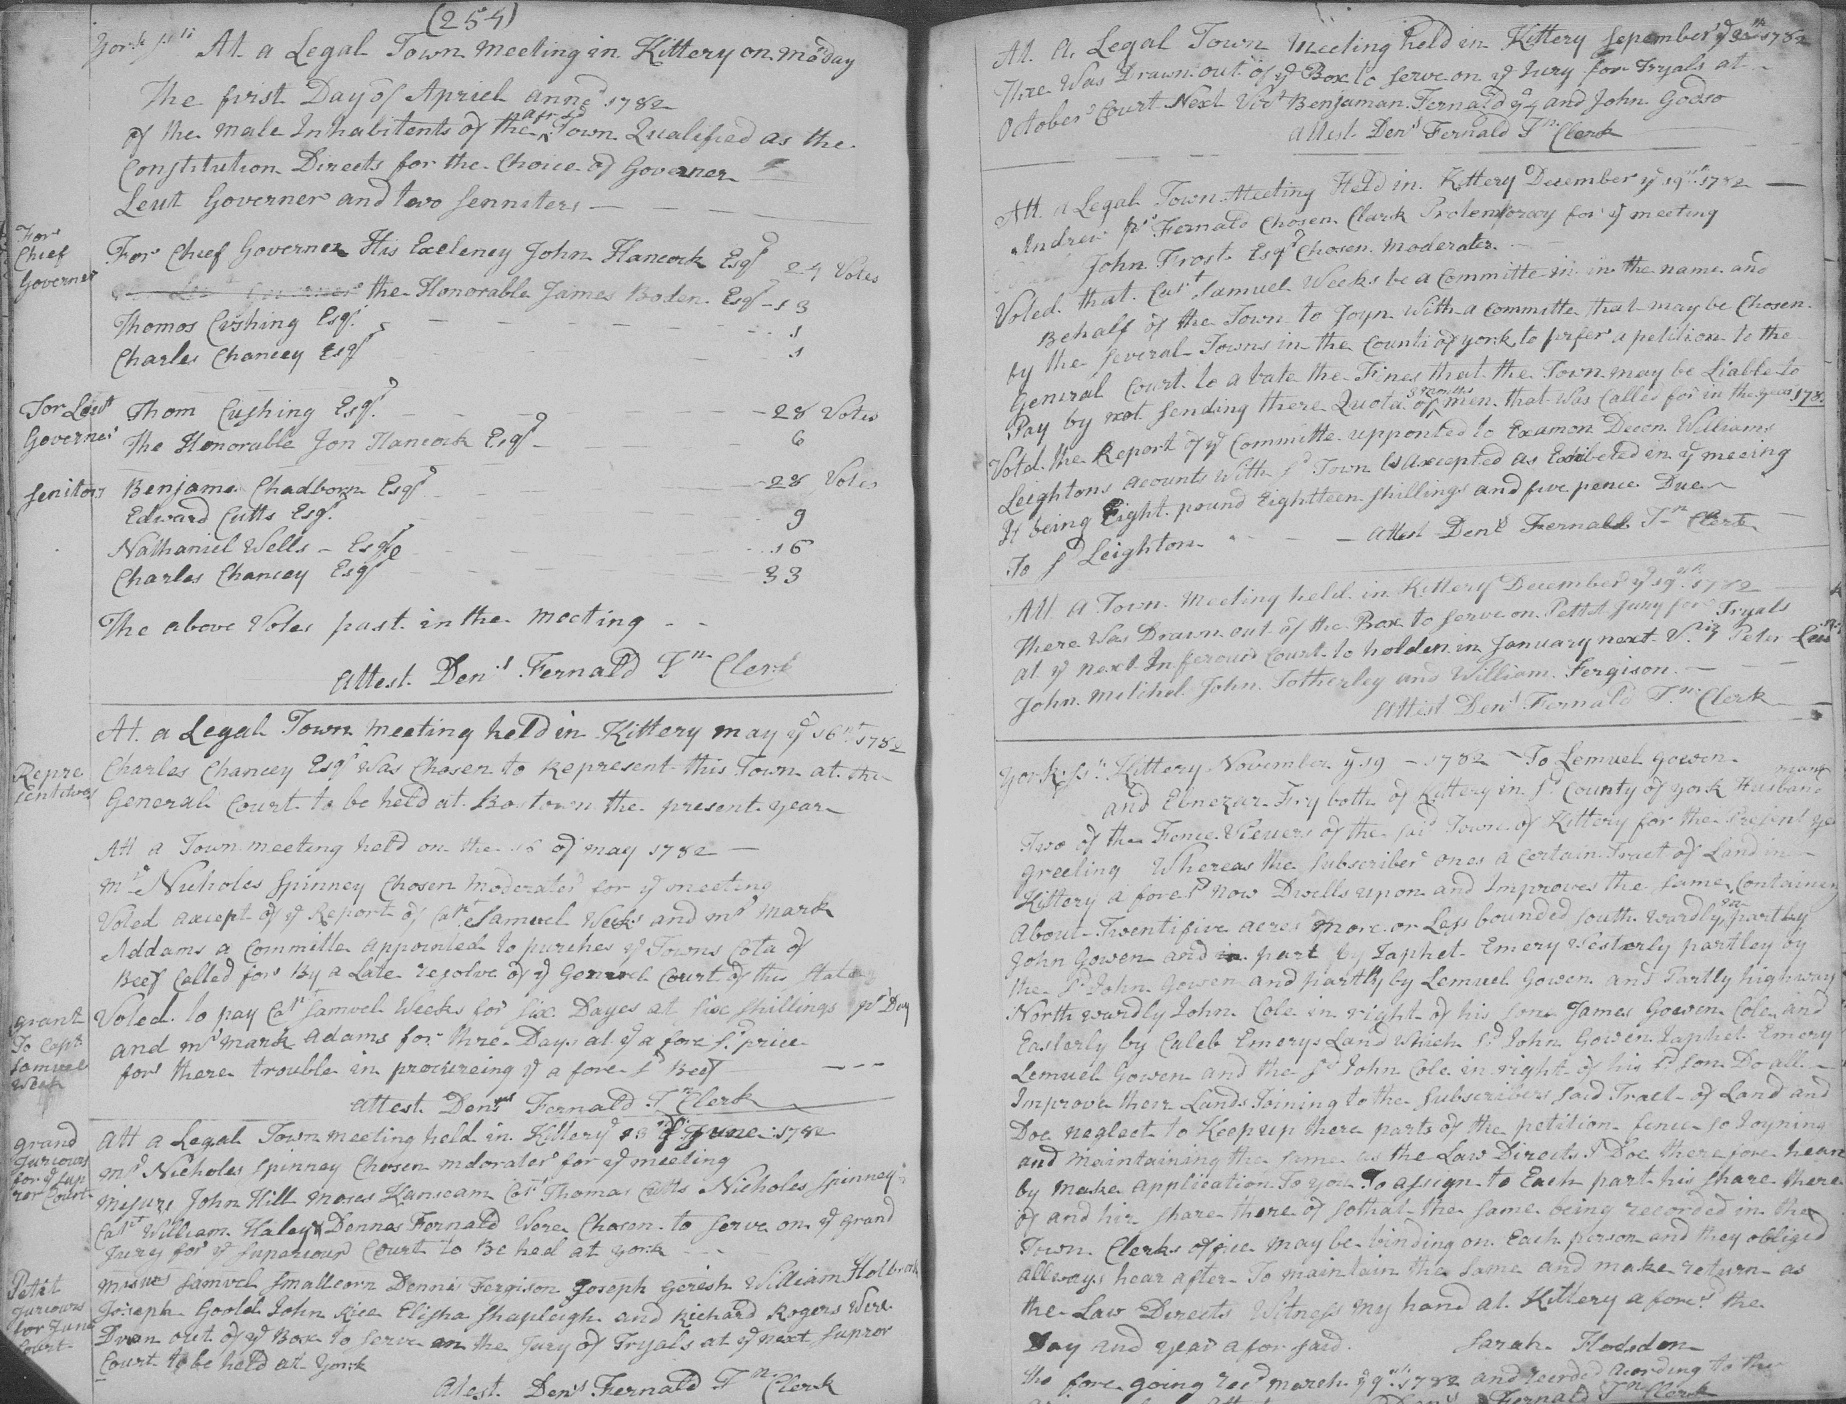 (254)
York ss
At a Legal Town meeting in Kittery on monday
The first Day of Apriel anno 1782
of the male Inhabitents of the afrsd Town Qualified as the
Constitution Directs for the Choice of Governer
Leut Governer and two Senniters
For Chief Governer
For Cheef Governer His Exeleney John Hancock Esqr 24 Votes
the Honorable James Boden Esqr 13
Thomos Cushing Esqr 1
Charles Chancey Esqr 1
For Leut Governer
Thom Cushing Esqr 28 Votes
The Honorable Jon Hancock Esqr 6
Senitors
Benjame Chadborn Esqr 28 Votes
Edward Cutts Esqr 9
Nathaniel Wells Esqr 16
Charles Chancey Esqr 33
The above Votes past in the meeting
Attest Denns Fernald Tn Clerk
At a Legal Town meeting held in Kittery may ye 16th 1782
Representitives
Charles Chancey Esqr Was Chosen to Represent this Town at the
General Court to be held at Bostown the present year
Att a Town meeting held on the 16 of may 1782
mr Nicholes Spinney Chosen moderater for ye meeting
Voted axcept of ye Report of Capt Samuel Weeks and mr mark
Addams a Committe appointed to purches ye Towns Cota of
Beef Called for By a Late resolve of ye General Court of this State
grant To Capt Samuel Week
Voted to pay Capt Samuel Weeks for Six Dayes at Six Shillings pr Day
and mr mark Adams for thre Days at ye a fore sd price
for there trouble in procureing ye a fore sd Beef
attest Denns Fernald Tn Clerk
grand Jurours for ye Suprer Court
Att a Legal Town meeting held in Kittery 13th of June 1782
mr Nicholes Spinney Chosen mdorater for ye meeting
mesurs John Hill moses Hanscam Capt Thomas Cutts Nicholes Spinney
Capt William Haley Dennes Fernald Were Chosen to Serve on ye grand
Jurey for ye Supariour Court to Be hed at york
Petit Jurours for June Court
mesurs Samuel Smallcorn Dennis Fergison Joseph Gerish William Holbrok
Joseph Goold John Rice Elisha Shapleigh and Richard Rogers Were
Dran out of ye Box to Serve on the Jury of Tryals at ye next Supror
Court to be held at york
Atest Denns Fernald Tn Clerk
At a Legal Town meeting held in Kittery Sepember ye 1782
Thre Was Drawn out of ye Box to Serve on ye Jury for Tryals at
October Court Next Vizt Benjaman Fernald and John Godso
attest Denns Fernald Tn Clerk
Att a Legal Town Meeting Held in Kittery December ye 19th 1782
Andrew Fernald Chosen Clark Protemporay for ye meeting
John Frost Esqr Chosen moderater
Voted that Capt Samuel Weeks be a Committe in the name and
Behalf of the Town to Joyn With a Committe that may be Chosen
by the Several Towns in the Counti of york to prefer a petition to the
General Court to a bate the Fines that the Town may be Liable to
Pay by not Sending there Quota of 3 months men that was Called for in the year 178
Voted the Report of ye Committe upponted to Examon Decon Williams
Leightons acounts with sd Town is Axcepted as Exibeted in ye meeing
It being Eight pound Eightteen Shillings and five pence Due
To sd Leighton
attest Denns Fernald Tn Clerk
Att a Town meeting held in Kittery December ye 19th 1782
There Was Drawn out of the Box to Serve on Pettet Jury for Tryals
at ye next Inferour Court to holden in January next Viz Peter
John mitchel John Fotherley and William Fergison
Attest Denns Fernald Tn Clerk
York ss Kittery November ye 19 1782 To Lemuel Gowen
and Ebnezar Fry both of Kittery in sd County of york Husband man
Two of the Fence Viewers of the said Town of Kittery for the Present ye
greeting Whereas the Subscriber ones a Certain Tract of Land in
Kittery a fore sd now Dwells upon and Improves the Same Containing
About Twenti five acres more or Less bounded South wardly partly
John Gowen and in part by Japhet Emery Westerly partley by
the sd John Gowen and partly by Lemuel Gowen and Partly highway
North wardly John Cole in right of his Son James Gowen Cole and
Easterly by Caleb Emerys Land Which sd John Gowen Japhet Emery
Lemuel Gowen and the sd John Cole in right of his sd Son Do all
Improve their Lands Joining to the Subscribers Said Tract of Land and
Doe neglect to Keep up there parts of the petition fence so Joyning
and maintaining the Same as the Law Directs I Doe there fore hear
by make application To you To assign to Each part his Share there
of and hir Share there of Sothat the Same being recorded in the
Town Clerks office may be binding on Each person and they obliged
allways hear after To maintain the Same and make return as
the Law Directs Witness my hand at Kittery a fore sd the
Day and year afor said
Sarah Hodsdon
the fore going recd march ye 9th 1782 and recorded Acording to the
Denns Fernald Tn Clerk